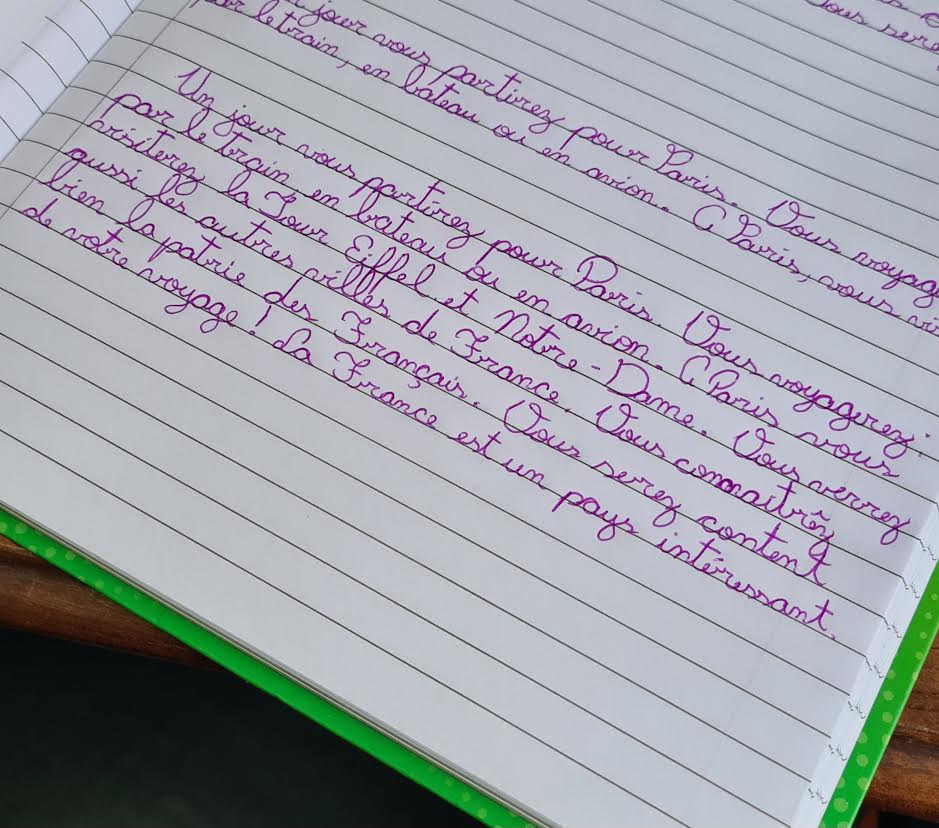 Vous sere
jour vous partirez pour Paris. Vous voyag
par le train, en bateau ou en avion. A Paris, vous vi
Un jour vous partirez pour Paris. Vous voyagerez
par le train, en bateau ou en avion. A Paris vous
visiterez la Tour Eiffel et Notre-Dame. Vous verrez
aussi les autres villes de France. Vous connaîtrez
bien la patrie des Français. Vous serez content
de votre voyage! La France est un pays intéressant.